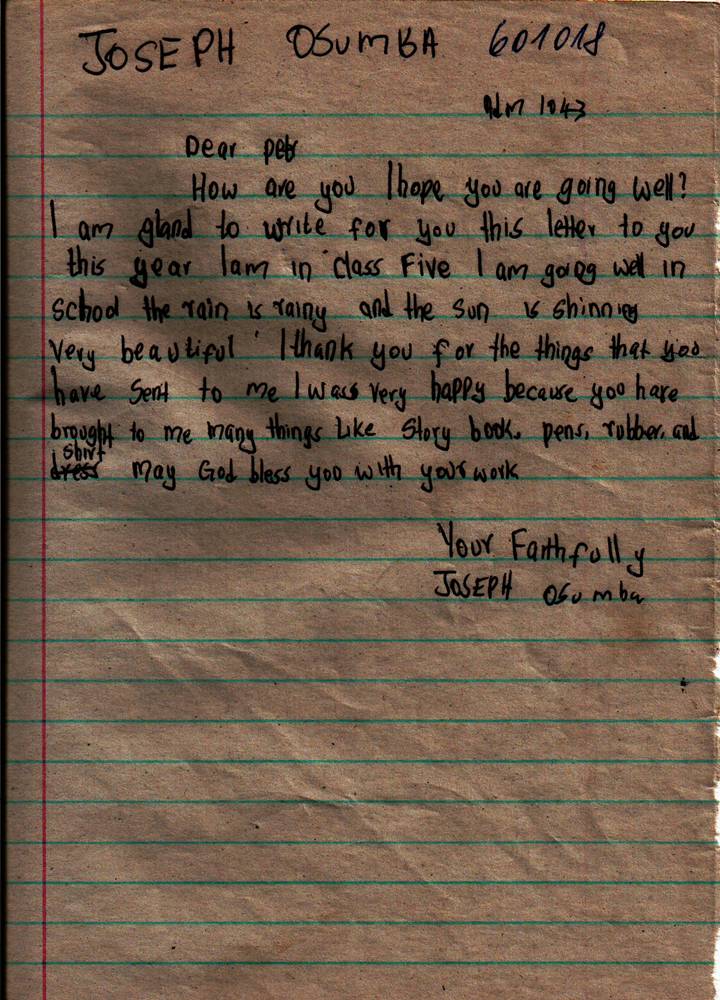 JOSEPH OSUMBA 601018
Adm 1043
Dear petr
How are you I hope you are going well?
I am gland to write for you this letter to you
this year Iam in class Five I am going well in
school the rain is rainy and the sun is shinning
Very beautiful Ithank you for the things that you
have sent to me I wass very happy because you have
brought to me many things like story book, pens, rubber, and
shirt
dress may God bless you with your work
Your Faithfully
JOSEPH Osumba